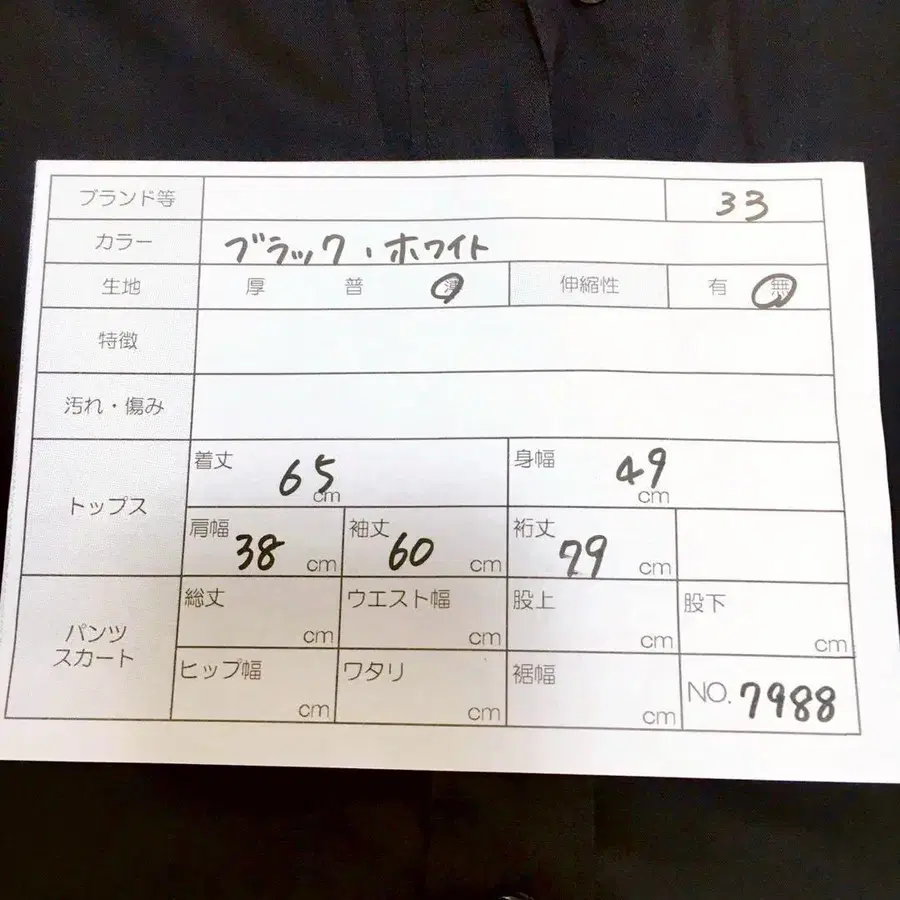 ブランド等 33
カラー ブラック・ホワイト
生地 厚 普 薄 伸縮性 有 無
特徴
汚れ・傷み
トップス
着丈 65 cm 身幅 49 cm
肩幅 38 cm 袖丈 60 cm 裄丈 79 cm
パンツ
スカート
総丈 cm ウエスト幅 cm 股上 cm 股下 cm
ヒップ幅 cm ワタリ cm 裾幅 cm NO. 7988